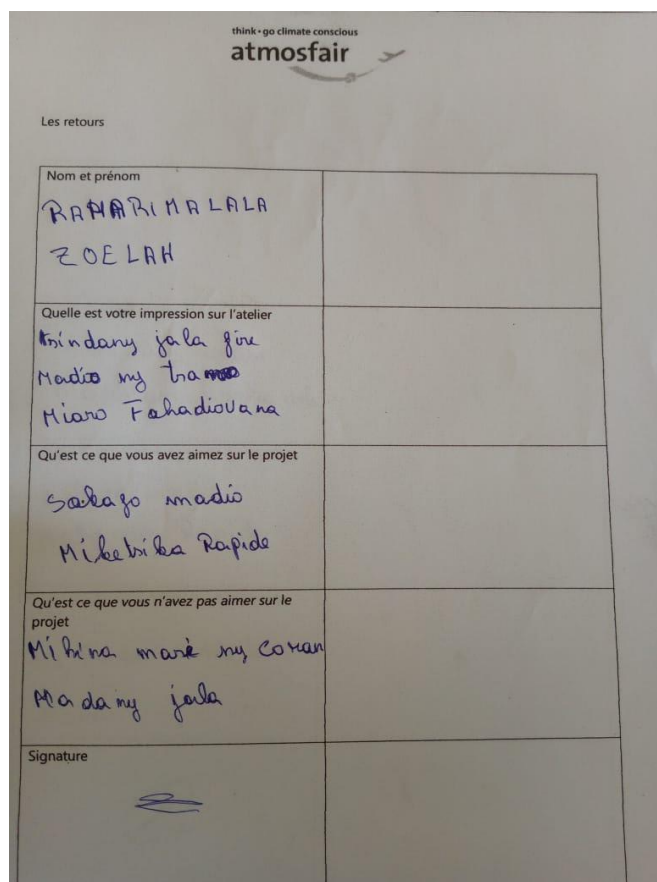 think • go climate conscious
atmosfair
Les retours
Nom et prénom
RAHARIMALALA
ZOELAH
Quelle est votre impression sur l'atelier
jala
Madio ny
Miaro Fahadiovana
Qu'est ce que vous avez aimez sur le projet
Sakafo madio
Miketrika Rapide
Qu'est ce que vous n'avez pas aimer sur le
projet
Mihina ny
jala
Signature